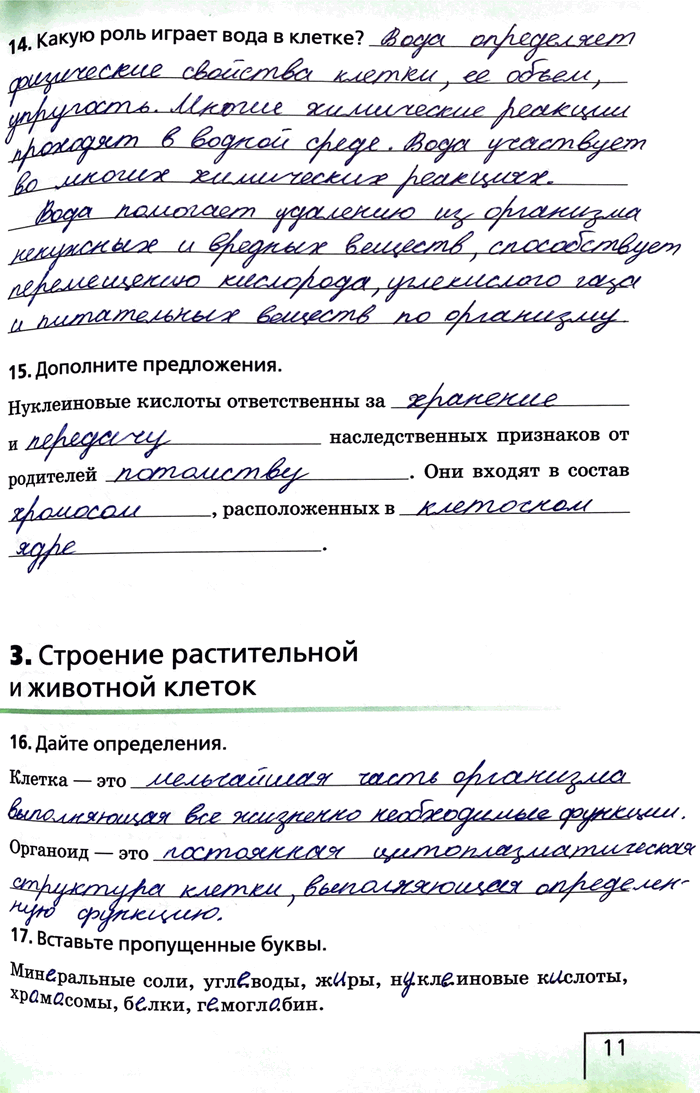 14. Какую роль играет вода в клетке? Вода определяет
физические свойства клетки, ее объем,
упругость. Многие химические реакции
проходят в водной среде. Вода участвует
во многих химических реакциях.
Вода помогает удалению из организма
ненужных и вредных веществ, способствует
перемещению кислорода, углекислого газа
и питательных веществ по организму
15. Дополните предложения.
Нуклеиновые кислоты ответственны за хранение
и передачу наследственных признаков от
родителей потомству. Они входят в состав
хромосом, расположенных в клеточном
ядре.
3. Строение растительной
и животной клеток
16. Дайте определения.
Клетка — это мельчайшая часть организма
выполняющая все жизненно необходимые функции.
Органоид — это постоянная цитоплазматическая
структура клетки, выполняющая определен-
ную функцию.
17. Вставьте пропущенные буквы.
Минеральные соли, углеводы, жиры, нуклеиновые кислоты,
храмасомы, белки, гемоглабин.
11